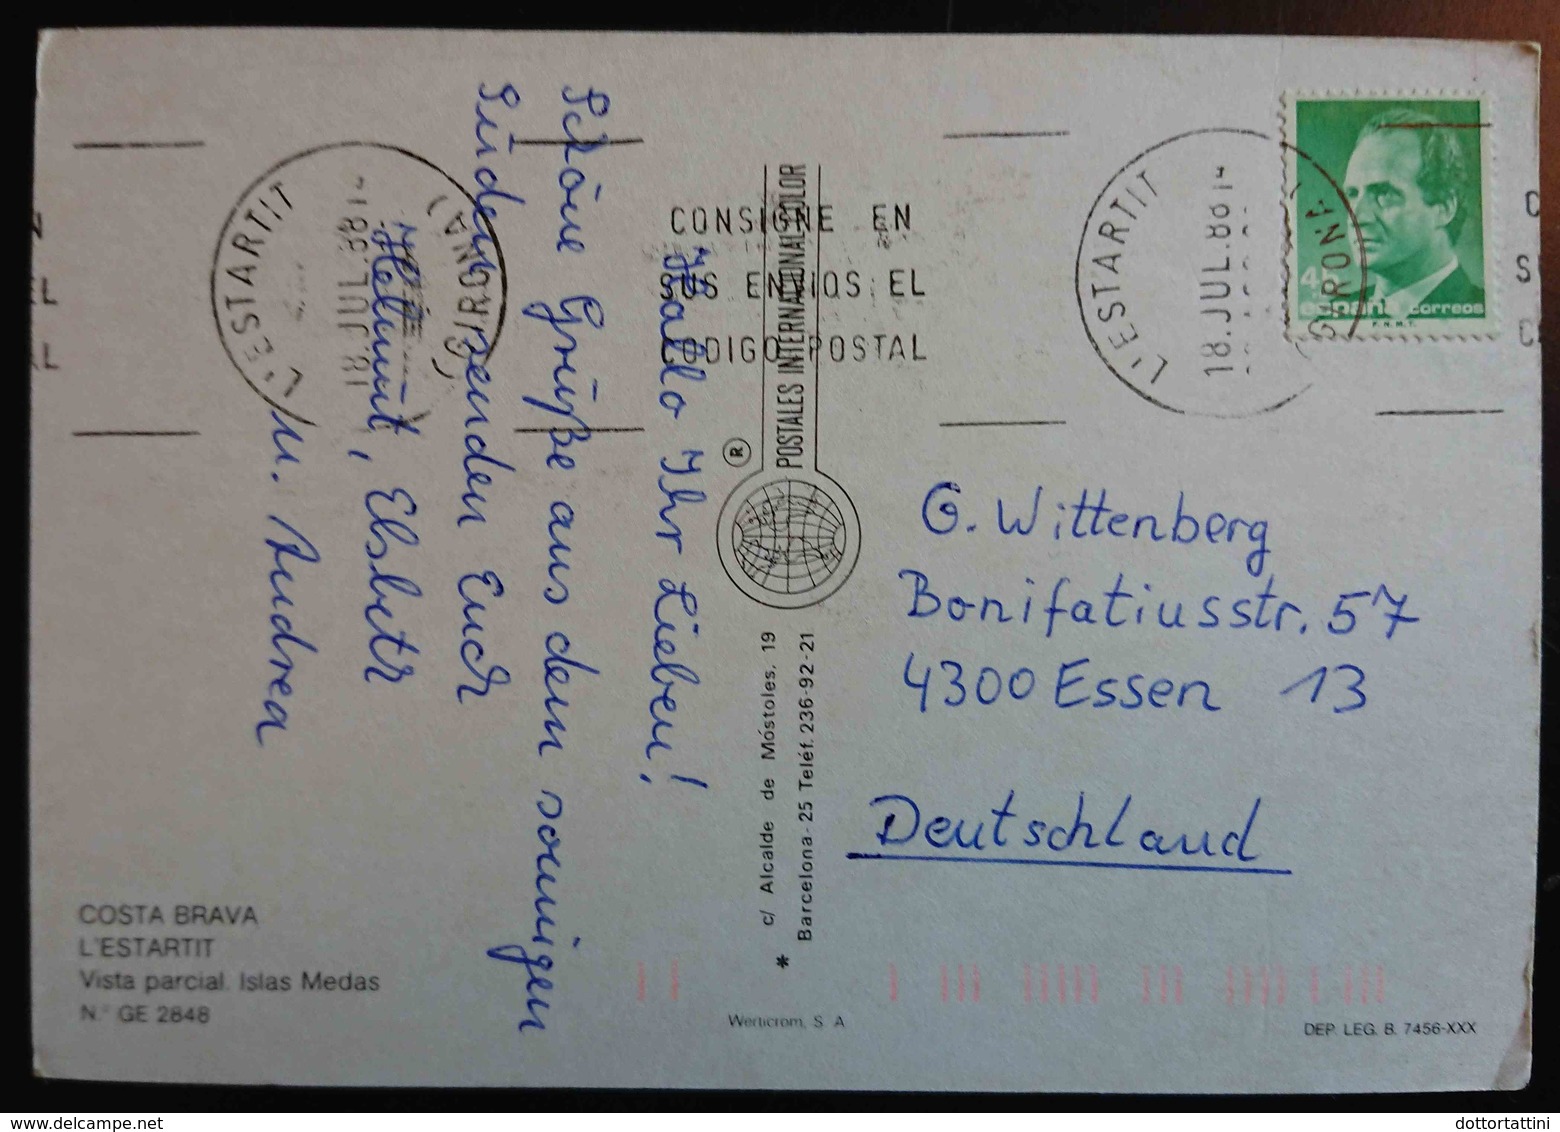 Hallo Ihr Lieben!
Schöne Grüße aus dem sonnigen
Süden senden Euch
Helmut, Elsbeth
u. Andrea
G. Wittenberg
Bonifatiusstr. 57
4300 Essen 13
Deutschland
L'ESTARTIT
18.JUL.88 14
(GIRONA)
CONSIGNE EN
SUS ENVIOS EL
CODIGO POSTAL
L'ESTARTIT
18.JUL.88 14
(GIRONA)
españa correos
F.N.M.T.
POSTALES INTERNATIONAL COLOR
®
* c/ Alcalde de Móstoles, 19
Barcelona-25 Teléf. 236-92-21
COSTA BRAVA
L'ESTARTIT
Vista parcial. Islas Medas
N.° GE 2848
Werticrom, S. A.
DEP. LEG. B. 7456-XXX
dottortattini